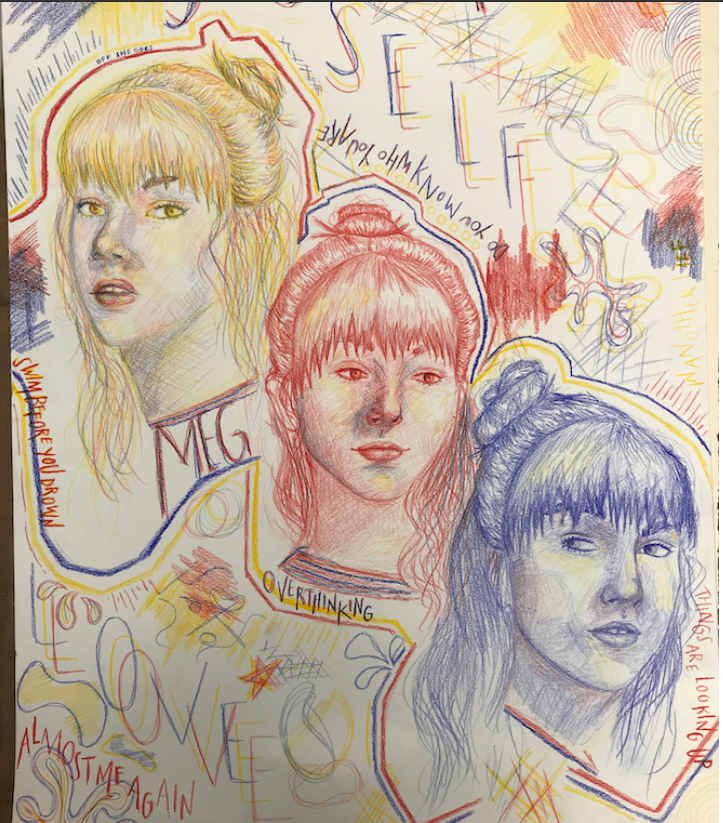 OFF SHE GOES
SELF
DO YOU KNOW WHO YOU ARE
ANOTHER LIFE
SWIM BEFORE YOU DROWN
MEG
OVERTHINKING
THINGS ARE LOOKING UP
LOVE
ALMOST ME AGAIN